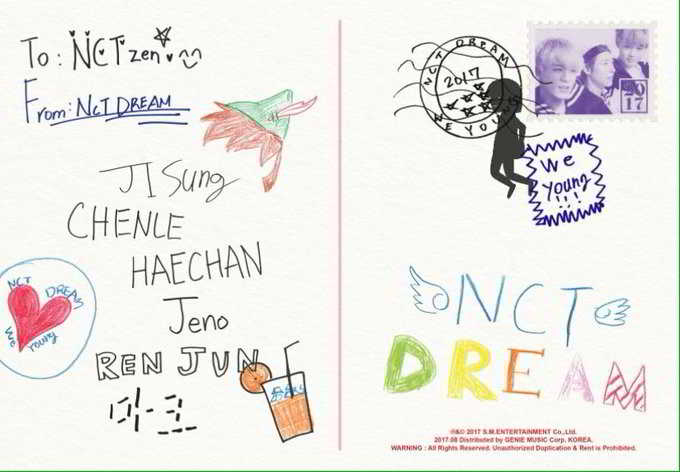 To: NCTzen
From: NCT DREAM
JISung
CHENLE
HAECHAN
Jeno
RENJUN
마크
NCT DREAM
We Young
NCT DREAM
2017
WE YOUNG
2017
We
young
!!!
NCT
DREAM
℗&© 2017 S.M.ENTERTAINMENT Co.,Ltd.
2017.08 Distributed by GENIE MUSIC Corp. KOREA.
WARNING : All Rights Reserved. Unauthorized Duplication & Rent is Prohibited.